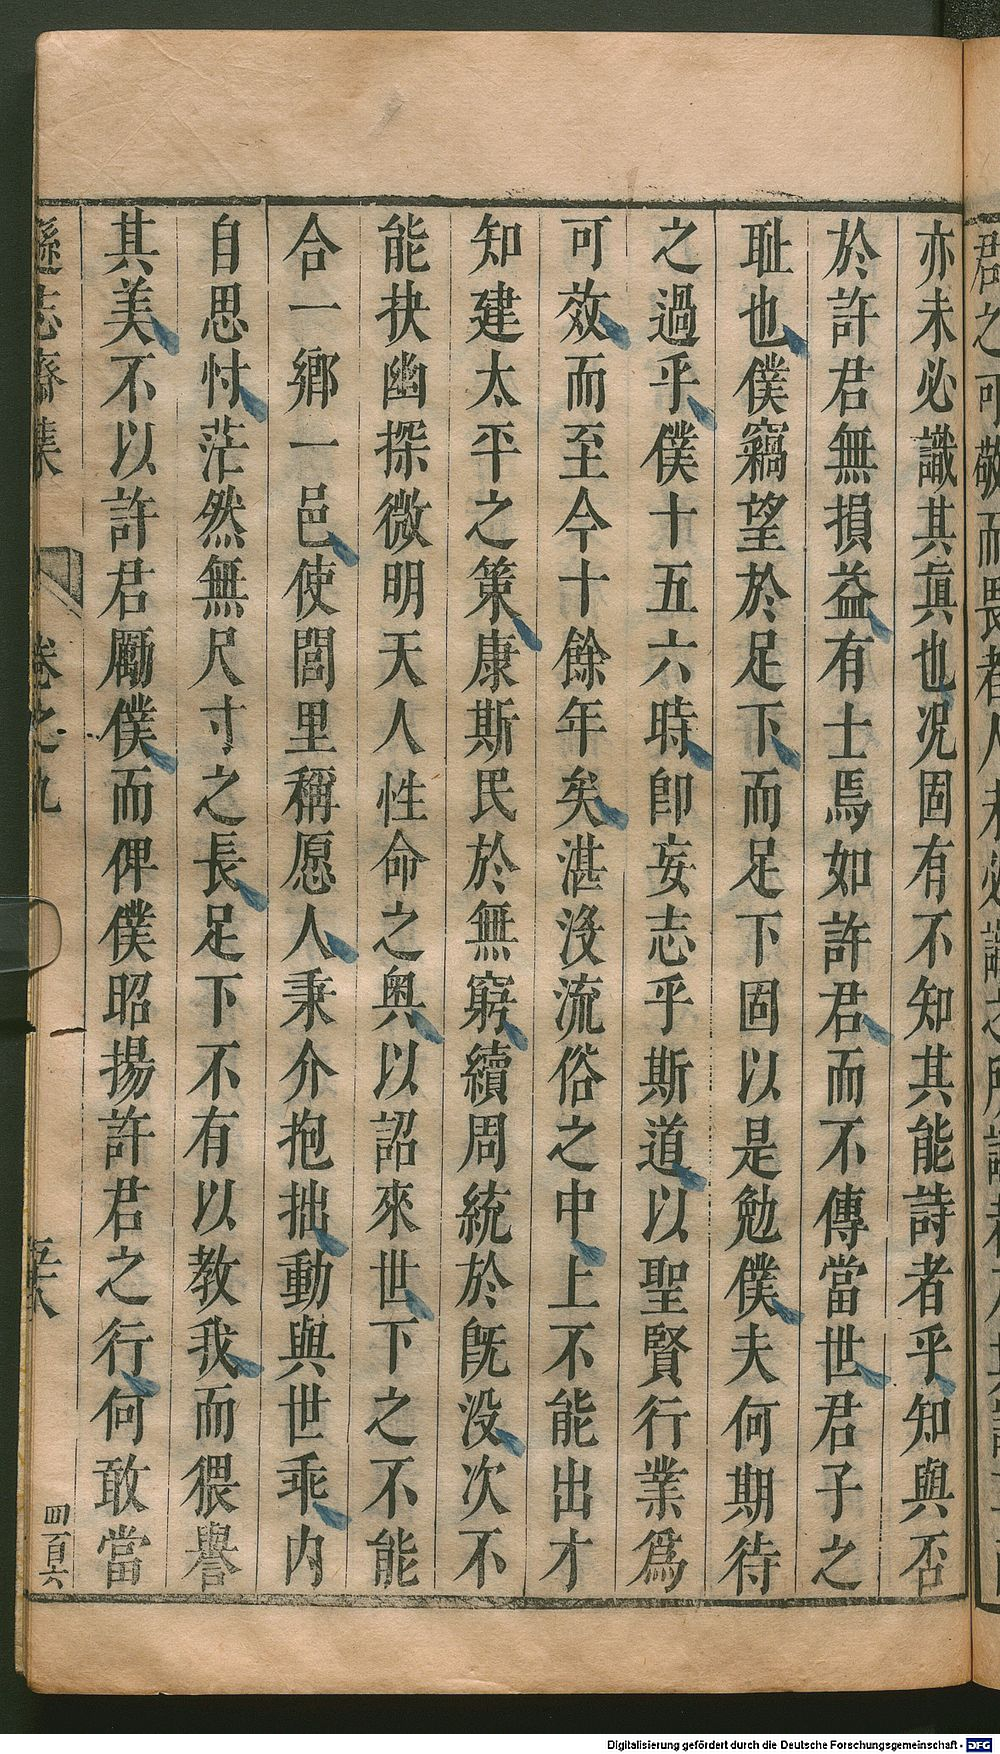 亦未必識其眞也况固有不知其能詩者乎知與否
於許君無損益有士焉如許君而不傳當世君子之
耻也僕竊望於足下而足下固以是勉僕夫何期待
之過乎僕十五六時卽妄志乎斯道以聖賢行業爲
可效而至今十餘年矣湛没流俗之中上不能出才
知建太平之策康斯民於無窮續周統於旣没次不
能抉幽探微明天人性命之奥以詔來世下之不能
合一鄉一邑使閭里稱愿人秉介抱拙動與世乖内
自思忖茫然無尺寸之長足下不有以教我而猥譽
其美不以許君勵僕而俾僕昭揚許君之行何敢當
遜志齋集
卷之九
五十八
四百六
Digitalisierung gefördert durch die Deutsche Forschungsgemeinschaft - DFG